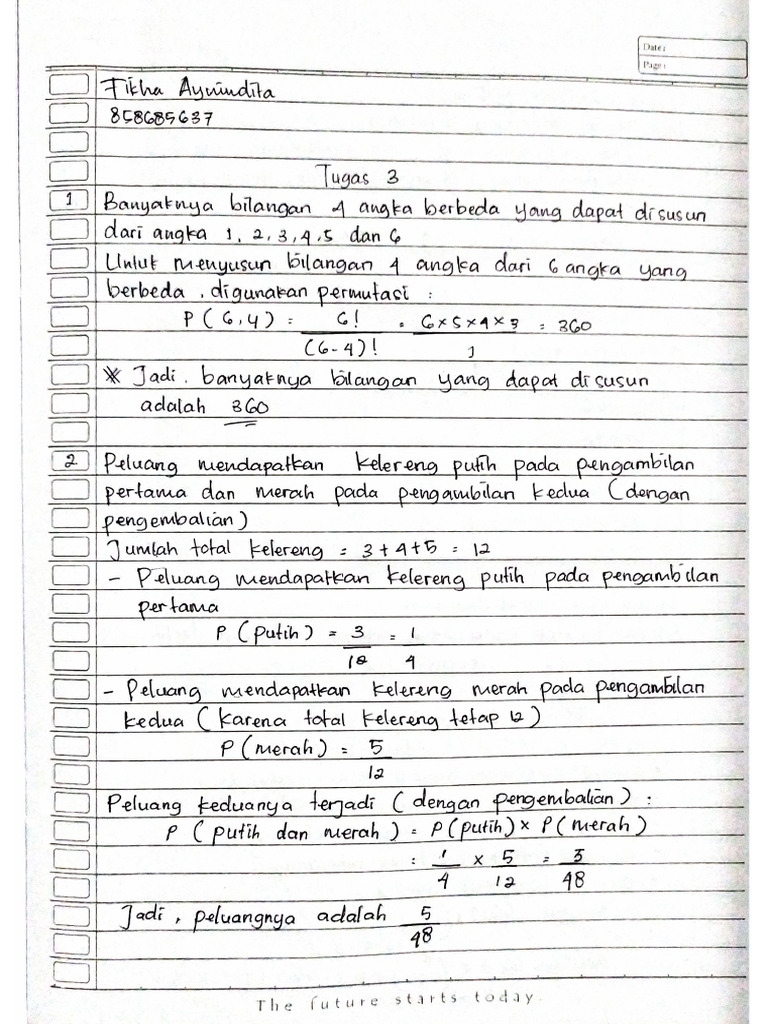 Date:
Page:
Fikha Ayunindita
858685637
Tugas 3
1 Banyaknya bilangan 4 angka berbeda yang dapat disusun
dari angka 1, 2, 3, 4, 5 dan 6
Untuk menyusun bilangan 4 angka dari 6 angka yang
berbeda, digunakan permutasi :
P (6,4) = 6! / (6-4)! = 6×5×4×3 / 1 = 360
* Jadi, banyaknya bilangan yang dapat disusun
adalah 360
2 Peluang mendapatkan kelereng putih pada pengambilan
pertama dan merah pada pengambilan kedua (dengan
pengembalian)
Jumlah total kelereng = 3+4+5 = 12
- Peluang mendapatkan kelereng putih pada pengambilan
pertama
P (putih) = 3/12 = 1/4
- Peluang mendapatkan kelereng merah pada pengambilan
kedua (karena total kelereng tetap 12)
P (merah) = 5/12
Peluang keduanya terjadi (dengan pengembalian) :
P (putih dan merah) = P(putih) × P(merah)
= 1/4 × 5/12 = 5/48
Jadi, peluangnya adalah 5/48
The future starts today.